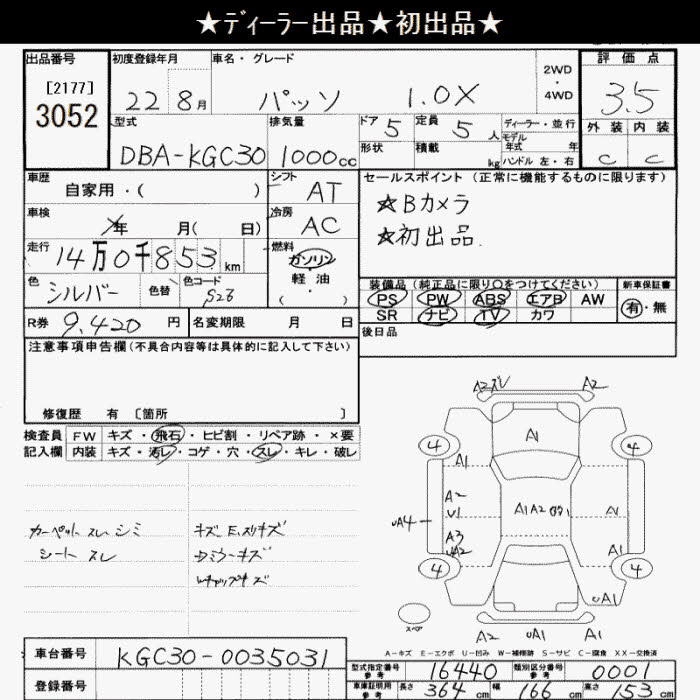 ★ディーラー出品★初出品★
出品番号
[2177]
3052
初度登録年月
22 8月
車名・グレード
パッソ 1.0X
2WD
・
4WD
評価点
3.5
外装 内装
C C
型式
DBA-KGC30
排気量
1000cc
ドア 5
形状
定員 5人
積載 kg
ディーラー・並行
モデル
年式 年
ハンドル 左・右
車歴
自家用・( )
シフト
AT
車検
年 月( 日)
冷房
AC
走行
14万0千853km
燃料
ガソリン
軽油
( ・ )
色
シルバー
色替
色コード
S26
R券 9,420円
名変期限 月 日
セールスポイント(正常に機能するものに限ります)
★Bカメラ
★初出品.
装備品(純正品に限り○をつけてください)
PS PW ABS エアB AW
SR ナビ TV カワ
新車保証書
有・無
後日品
注意事項申告欄(不具合内容等は具体的に記入して下さい)
修復歴 有 [箇所 ]
検査員
記入欄
FW キズ・飛石・ヒビ割・リペア跡・×要
内装 キズ・汚レ・コゲ・穴・スレ・キレ・破レ
カーペット スレ シミ
シート スレ
キズ E,スリキズ
A3キズ A2
4 A1 4
A1
A2
U1 A1A2 A1
UA4
A3
UA2 A1
4 4
UA1
スペア
A2 UA1 A1
A-キズ E-エクボ U-凹み W-補修跡 S-サビ C-腐食 XX-交換済
車台番号
KGC30-0035031
登録番号
型式指定番号
参考
16440
類別区分番号
参考
0001
車庫証明用
参考
長さ 364cm 幅 166cm 高さ 153cm